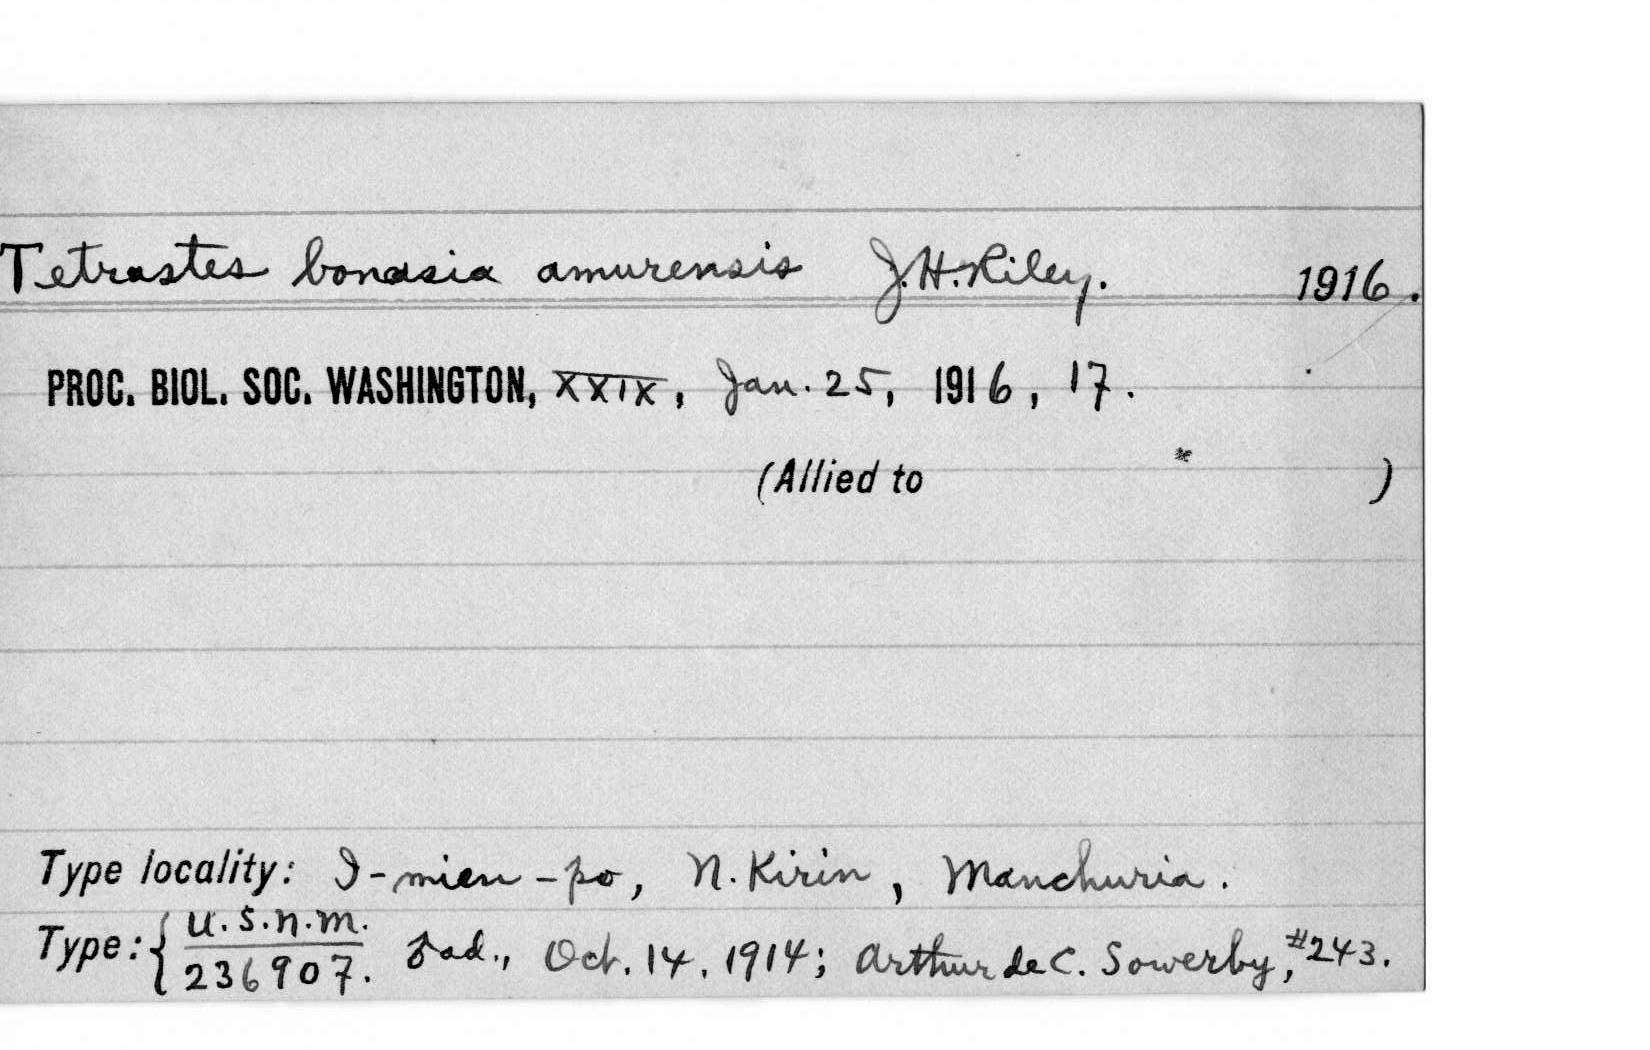 Tetrastes bonasia amurensis J.H.Riley. 1916.
PROC. BIOL. SOC. WASHINGTON, XXIX, Jan. 25, 1916, 17.
(Allied to * )
Type locality: I-mien-po, N. Kirin, Manchuria.
Type: { U.S.N.M.
236907. ♂ ad., Oct. 14, 1914; Arthur de C. Sowerby, #243.